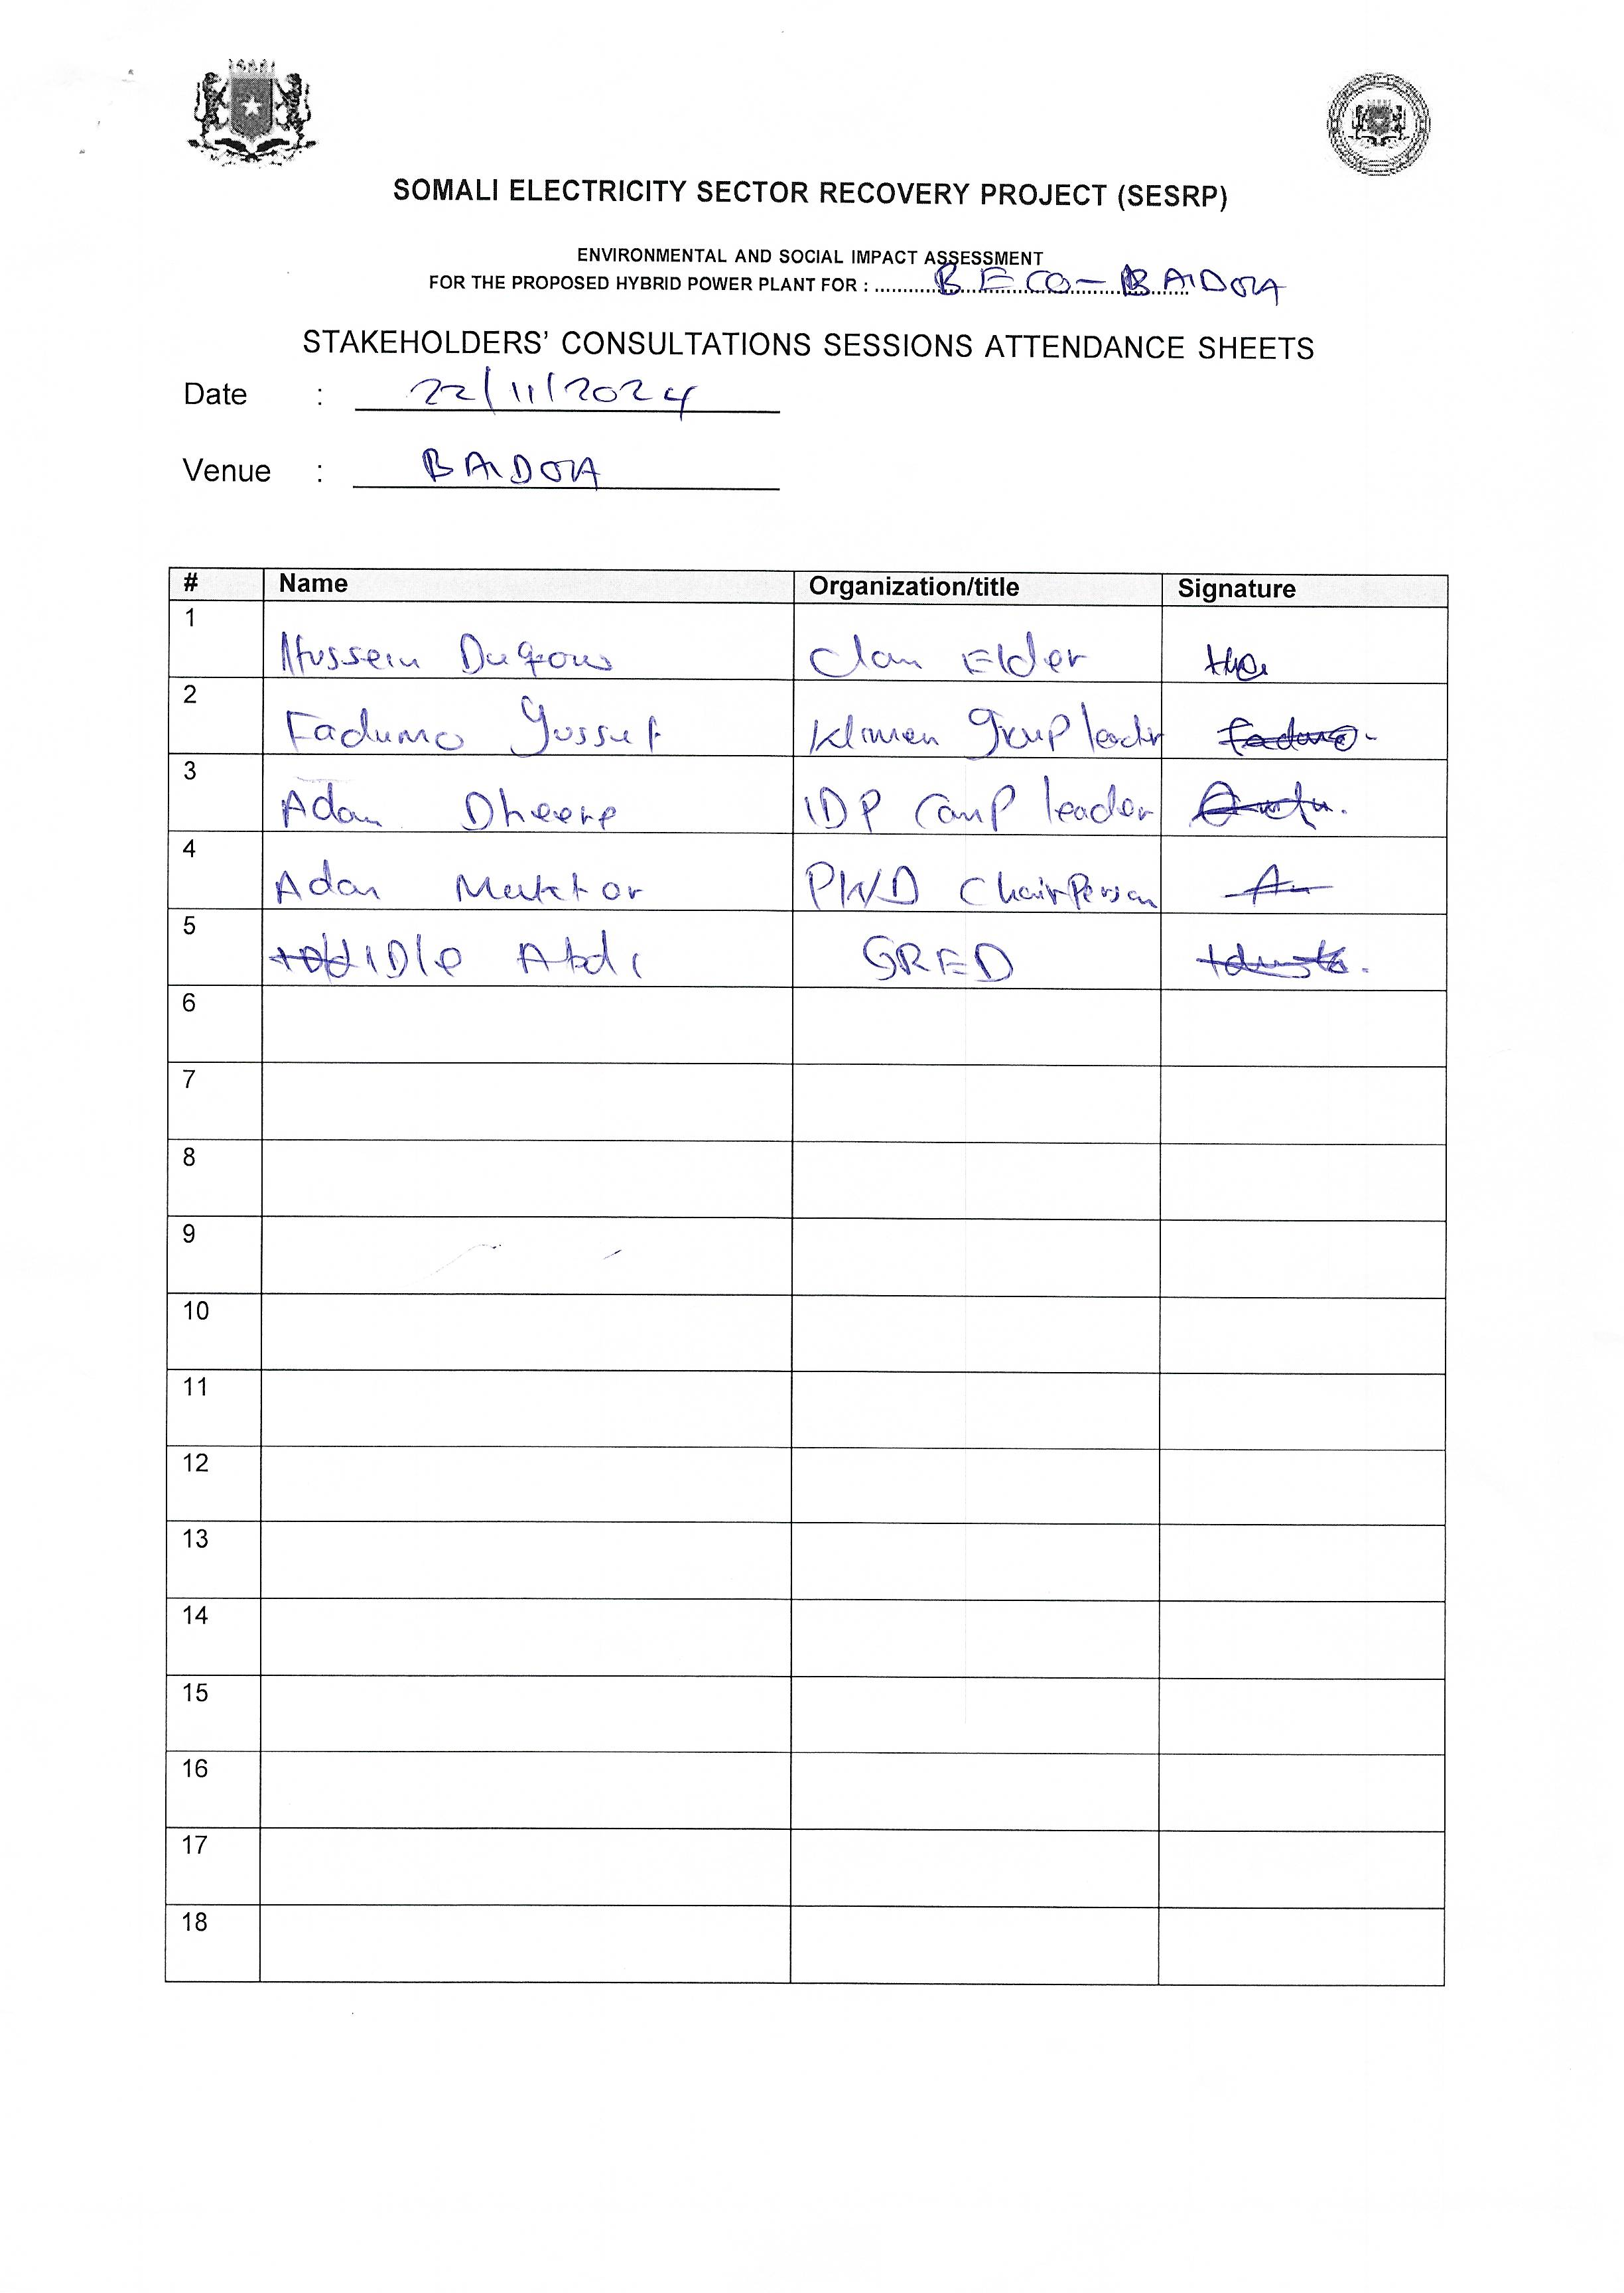 SOMALI ELECTRICITY SECTOR RECOVERY PROJECT (SESRP)
ENVIRONMENTAL AND SOCIAL IMPACT ASSESSMENT
FOR THE PROPOSED HYBRID POWER PLANT FOR : BECO-BAIDOA
STAKEHOLDERS' CONSULTATIONS SESSIONS ATTENDANCE SHEETS
Date : 22/11/2024
Venue : BAIDOA
# Name Organization/title Signature
1 Hussein Clan Elder
2 Fadumo Yussuf group leader
3 Adan Dheere IDP Camp leader
4 Adan Muktar PWD ChairPerson
5 IDle Abdi GRED
6
7
8
9
10
11
12
13
14
15
16
17
18